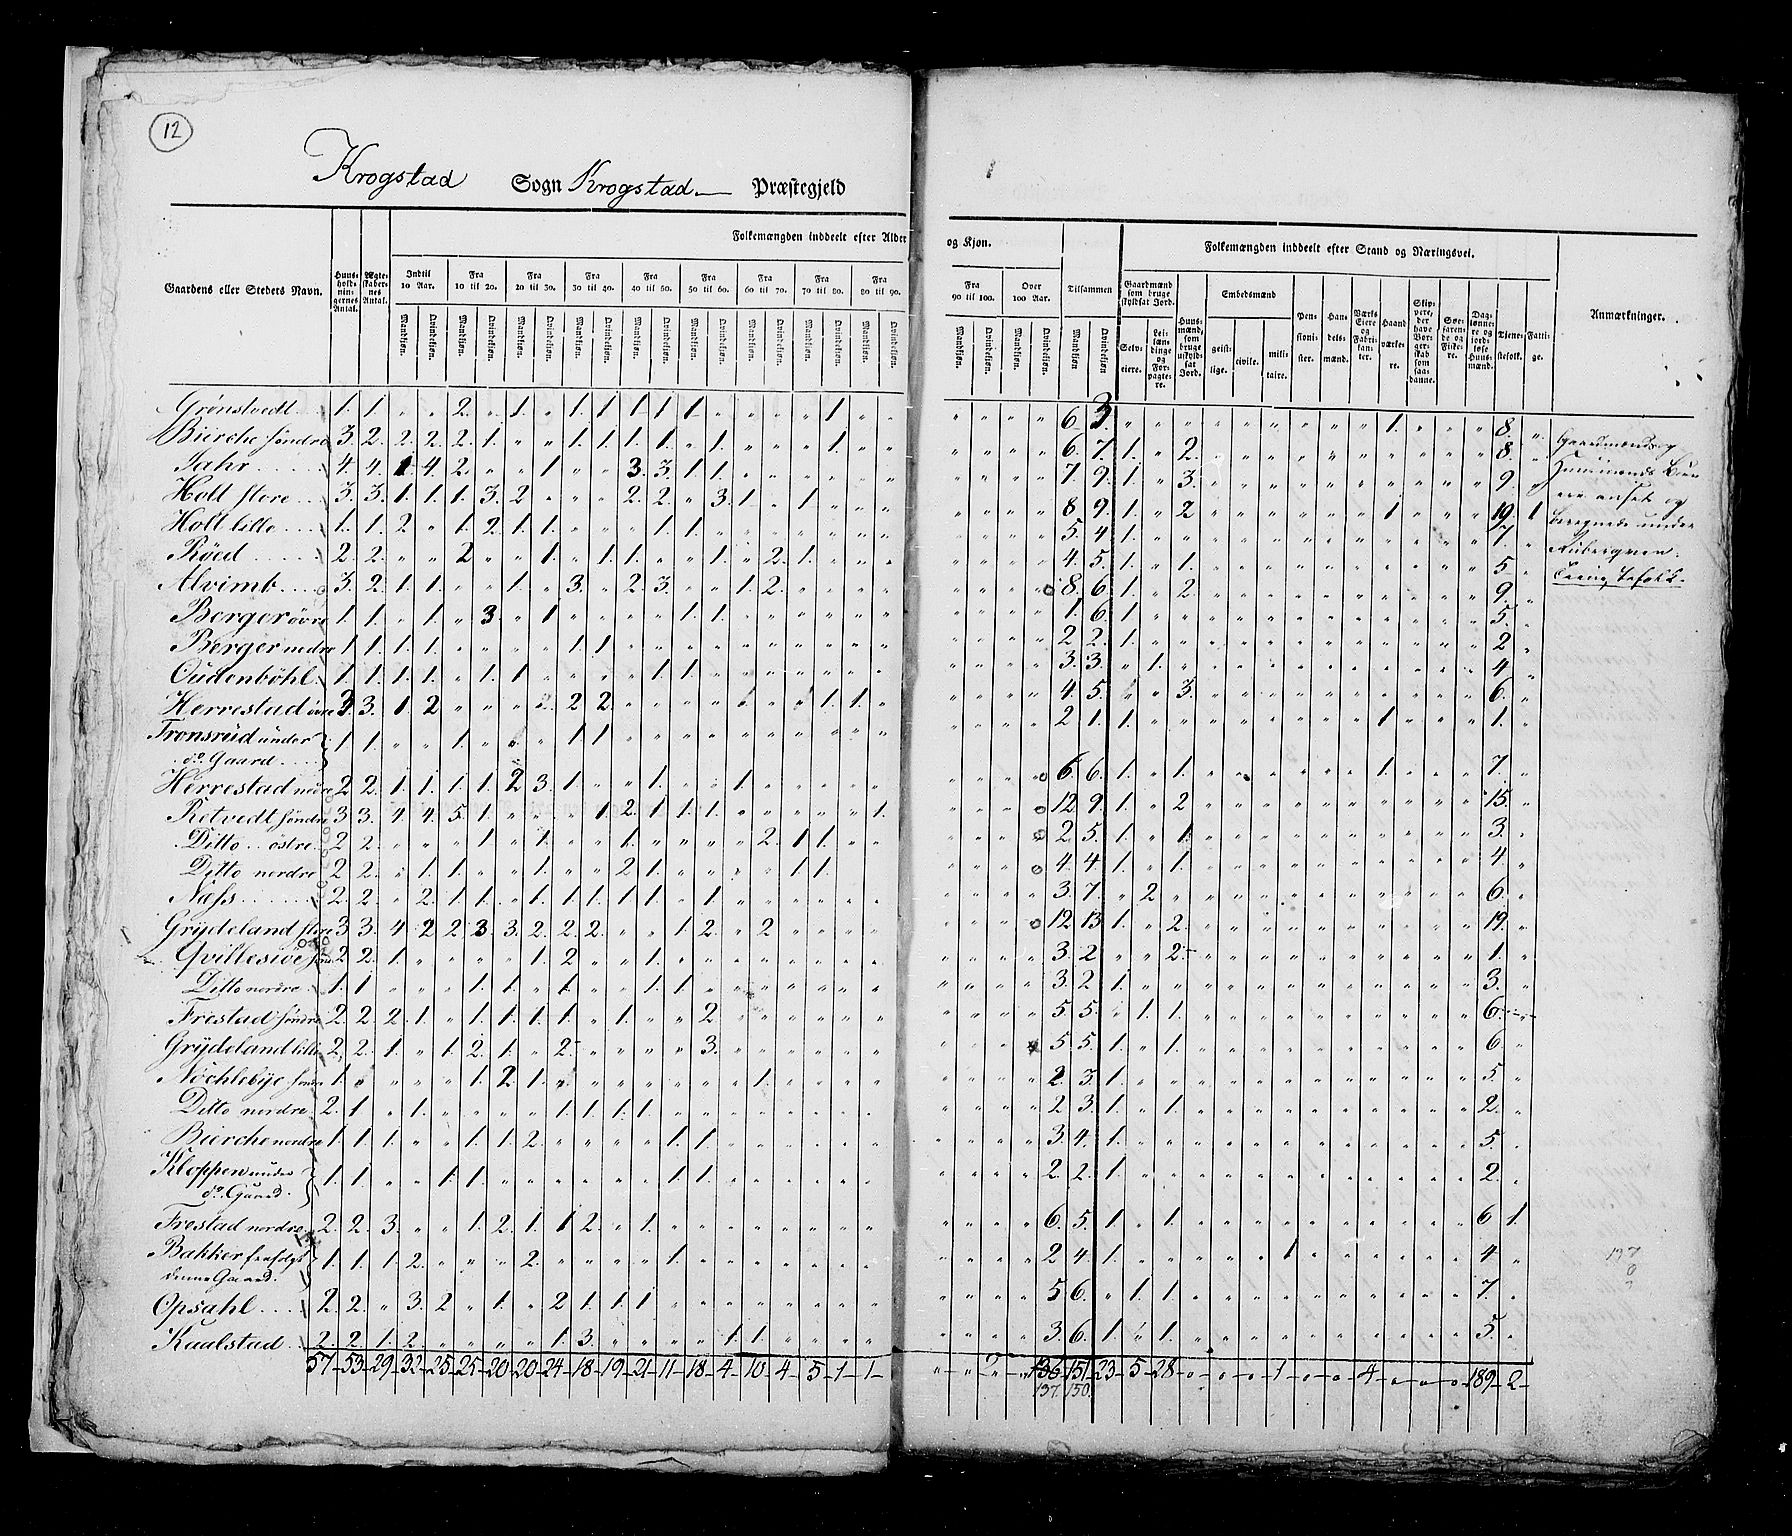 12
Krogstad Sogn Krogstad Præstegjeld
Folkemængden inddeelt efter Alder og Kjøn.
Folkemængden inddeelt efter Stand og Næringsvei.
Gaardens eller Stedets Navn.
Huusholdningernes Antal.
Ægteskabernes Antal.
Indtil 10 Aar.
Fra 10 til 20.
Fra 20 til 30.
Fra 30 til 40.
Fra 40 til 50.
Fra 50 til 60.
Fra 60 til 70.
Fra 70 til 80.
Fra 80 til 90.
Fra 90 til 100.
Over 100 Aar.
Tilsammen
Mandkjøn. Qvindekjøn.
Gaardmænd som bruge skyldsat Jord.
Selveiere.
Leilændinge og Forpagtere.
Huusmænd, som bruge uskyldsat Jord.
Embedsmænd
geistlige. civile. militaire.
Pensionister.
Handelsmænd.
Værks Eiere og Fabrikanter.
Haandværkere.
Skippere, der have Borgerskab som saadanne.
Søefarende og Fiskere.
Daglønnere og jordløse Huusmænd.
Tienestefolk.
Fattige.
Anmærkninger.
Grönstvedt 1. 1. 2. 1. 1. 1. 1. 1. 1. 1. 6. 3. 1. 8.
Bierche söndre 3. 2. 2. 2. 2. 1. 1. 1. 1. 1. 1. 1. 6. 7. 1. 2. 8.
Jahr 4. 4. 1. 4. 2. 1. 3. 3. 1. 1. 7. 9. 1. 3. 9.
Holt store 3. 3. 1. 1. 1. 3. 2. 2. 2. 3. 1. 1. 8 9. 1. 2 1 19. 1
Holt lille 1. 1. 2 1. 2. 1. 1. 1. 1. 5. 4 1. 7.
Röed 2. 2. 2 1. 1. 1. 1. 2. 1. 4. 5. 1. 1. 5
Alvimb 3. 2. 1. 1. 1. 3. 2. 3. 1. 2. 8. 6. 1. 2. 9.
Berger övre 1. 1. 1. 3. 1 1. 1. 1. 6. 1 5.
Berger nedre 1. 1. 1. 1. 1. 1. 2 2. 1. 2
Oudenböhl 1. 1. 1. 1. 1. 1. 1. 1. 3. 3. 1. 4
Herrestad övre 3. 3. 1. 2 2. 2 2. 1. 1. 4. 5. 3. 6.
Tronsrüd under 1. 1. 1. 1. 1. 2 1. 1. 1 1.
do. Gaard
Herrestad nedre 2 2. 1. 1. 1. 1. 2 3. 1. 1. 1. 6. 6. 1. 1. 1. 7.
Retvedt söndre 3 3. 4. 4. 5. 1. 1. 2. 1. 1. 1. 1. 12. 9. 1. 2 15.
Ditto östre 2. 2. 1. 1. 1. 2. 1. 1. 2. 5. 1. 1. 3.
Ditto nordre 2. 2. 1. 1. 1. 2 1. 1. 1. 4. 4. 1. 1. 4.
Næss 2. 2. 2. 1. 1. 1. 1. 1. 1. 1. 1. 3. 7. 2 6.
Grydeland store 3. 3. 4 2 2. 3. 3. 2. 2. 2. 1. 2. 2 12. 13. 1. 2. 19.
Qvillesiöe 2. 2. 1. 1. 2 1. 3. 2 2. 1.
Ditto nordre 1. 1 1. 1. 1. 1. 1. 3. 2 1. 3.
Frestad söndre 2. 2. 2. 1. 1. 1. 1. 1. 1. 1. 2 5 5. 1. 1. 6.
Grydeland lille 2. 2. 1. 1. 2. 1. 2. 3. 5. 5. 1. 1. 6
Nöchlebye 1. 1. 2 1. 1. 2. 3. 1. 5.
Ditto nordre 2. 1 1. 1. 1. 1. 1. 2 3. 1. 1. 2.
Bierche nordre 1. 1. 1. 1. 1. 2. 1. 1. 3. 4. 1. 5.
Kloppen under 1. 1. 1. 1. 1. 1. 2. 2. 1. 2.
do. Gaard.
Frestad nordre 2. 2. 3. 1. 2. 1. 1 2. 1. 6. 5. 1. 1. 6 1.
Bakker 1. 1. 1. 2. 2. 1. 2 4. 1. 1 4
denne Gaard.
Opsahl 2. 2. 3. 2 1. 2 1. 1. 1 5 6. 1. 1. 7.
Kaalstad 2. 2. 1. 2. 1. 3. 1. 1. 3. 6. 1. 1. 5.
57 53 29 32 25 25 20 20 24 18 19 21 11 18 4 10 4 5 1 1 2 136 151 23 5 28 0 0 0 1 0 0 4 0 0 0 189 2
137. 150.
Gaardmænds og
Huusmænds Børn
ere anført og
beregnede under
Rubergven
Tienestefolk.
137
0